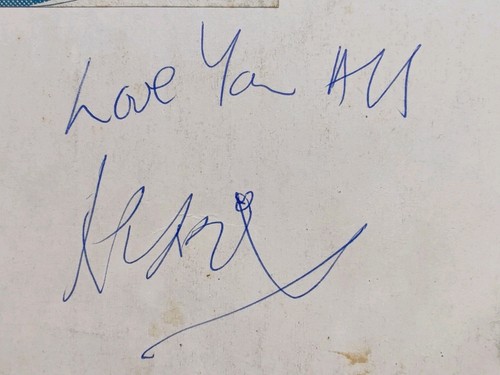 Love You All